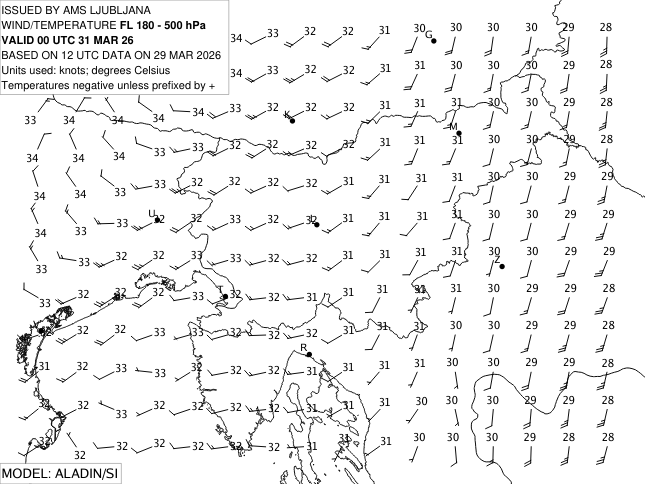 ISSUED BY AMS LJUBLJANA
WIND/TEMPERATURE FL 180 - 500 hPa
VALID 00 UTC 31 MAR 26
BASED ON 12 UTC DATA ON 29 MAR 2026
Units used: knots; degrees Celsius
Temperatures negative unless prefixed by +
34 33 32 32 31 30 30 30 30 29 28
G
34 33 32 32 31 30 30 30 30 29 28
33 34 34 34 33 32 32 31 31 31 30 30 29 28
K
M
34 34 34 33 33 32 32 32 31 31 31 30 30 29 28
34 34 33 33 32 32 32 32 31 31 31 30 30 29 29
34 34 33 32 32 33 32 31 31 31 31 30 30 29 29
U
33 33 32 32 33 32 32 31 31 31 30 30 29 29
Z
33 32 32 32 33 32 32 32 31 31 31 30 30 29 28
T
32 32 32 33 33 32 32 32 31 31 30 30 29 29 28
R
31 32 33 33 32 32 32 31 31 31 30 30 29 29 28
32 32 33 32 32 32 32 31 31 31 30 30 29 29 28
32 32 33 32 32 32 32 31 31 31 30 30 30 29 28 28
MODEL: ALADIN/SI